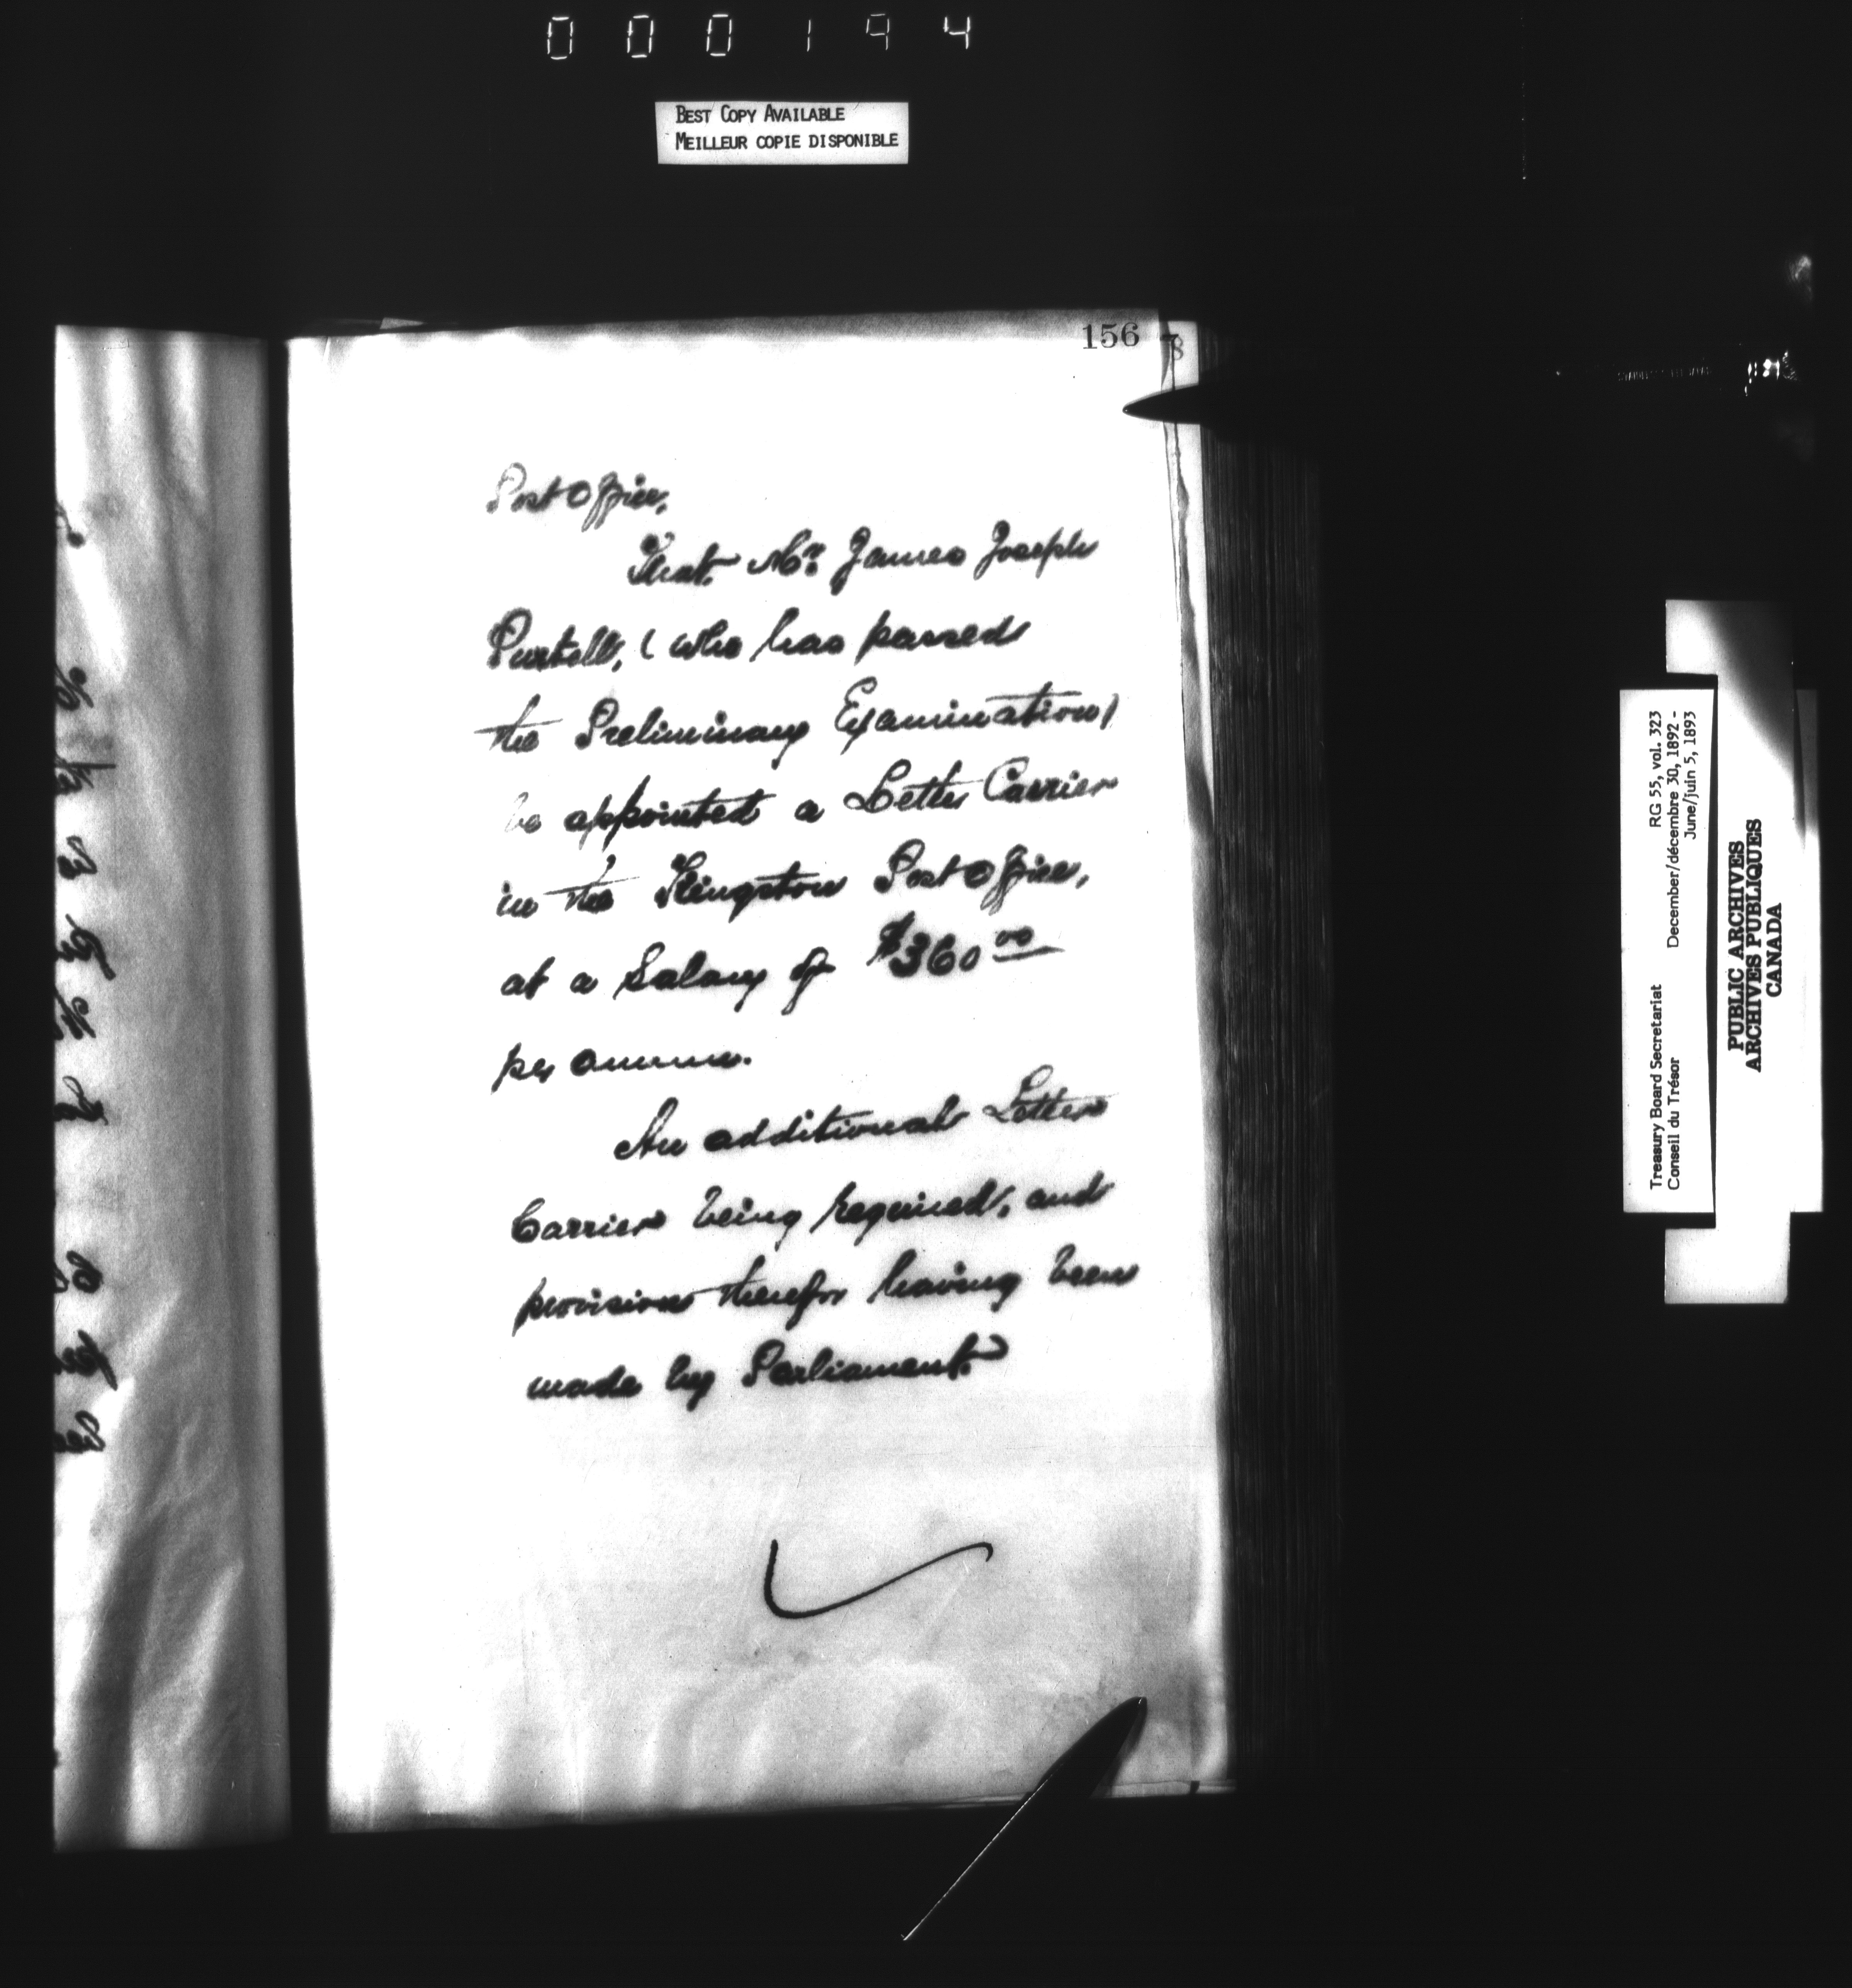 000194
BEST COPY AVAILABLE
MEILLEUR COPIE DISPONIBLE
156
8
Post Office,
That Mr. James Joseph
Purtell, (who has passed
the Preliminary Examination)
be appointed a Letter Carrier
in the Kingston Post Office,
at a Salary of $360 00
per annum.
An additional Letter
Carrier being required, and
provision therefor having been
made by Parliament.
Treasury Board Secretariat RG 55, vol. 323
Conseil du Trésor December/décembre 30, 1892 -
June/juin 5, 1893
PUBLIC ARCHIVES
ARCHIVES PUBLIQUES
CANADA